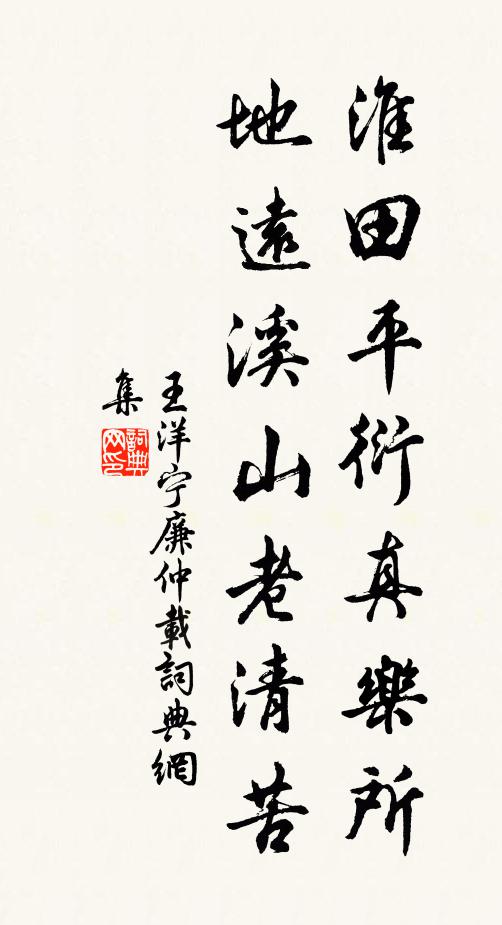 淮田平衍真樂所
地遠溪山老清苦
王洋宁廉仲載詞典網
集
詞典
网印